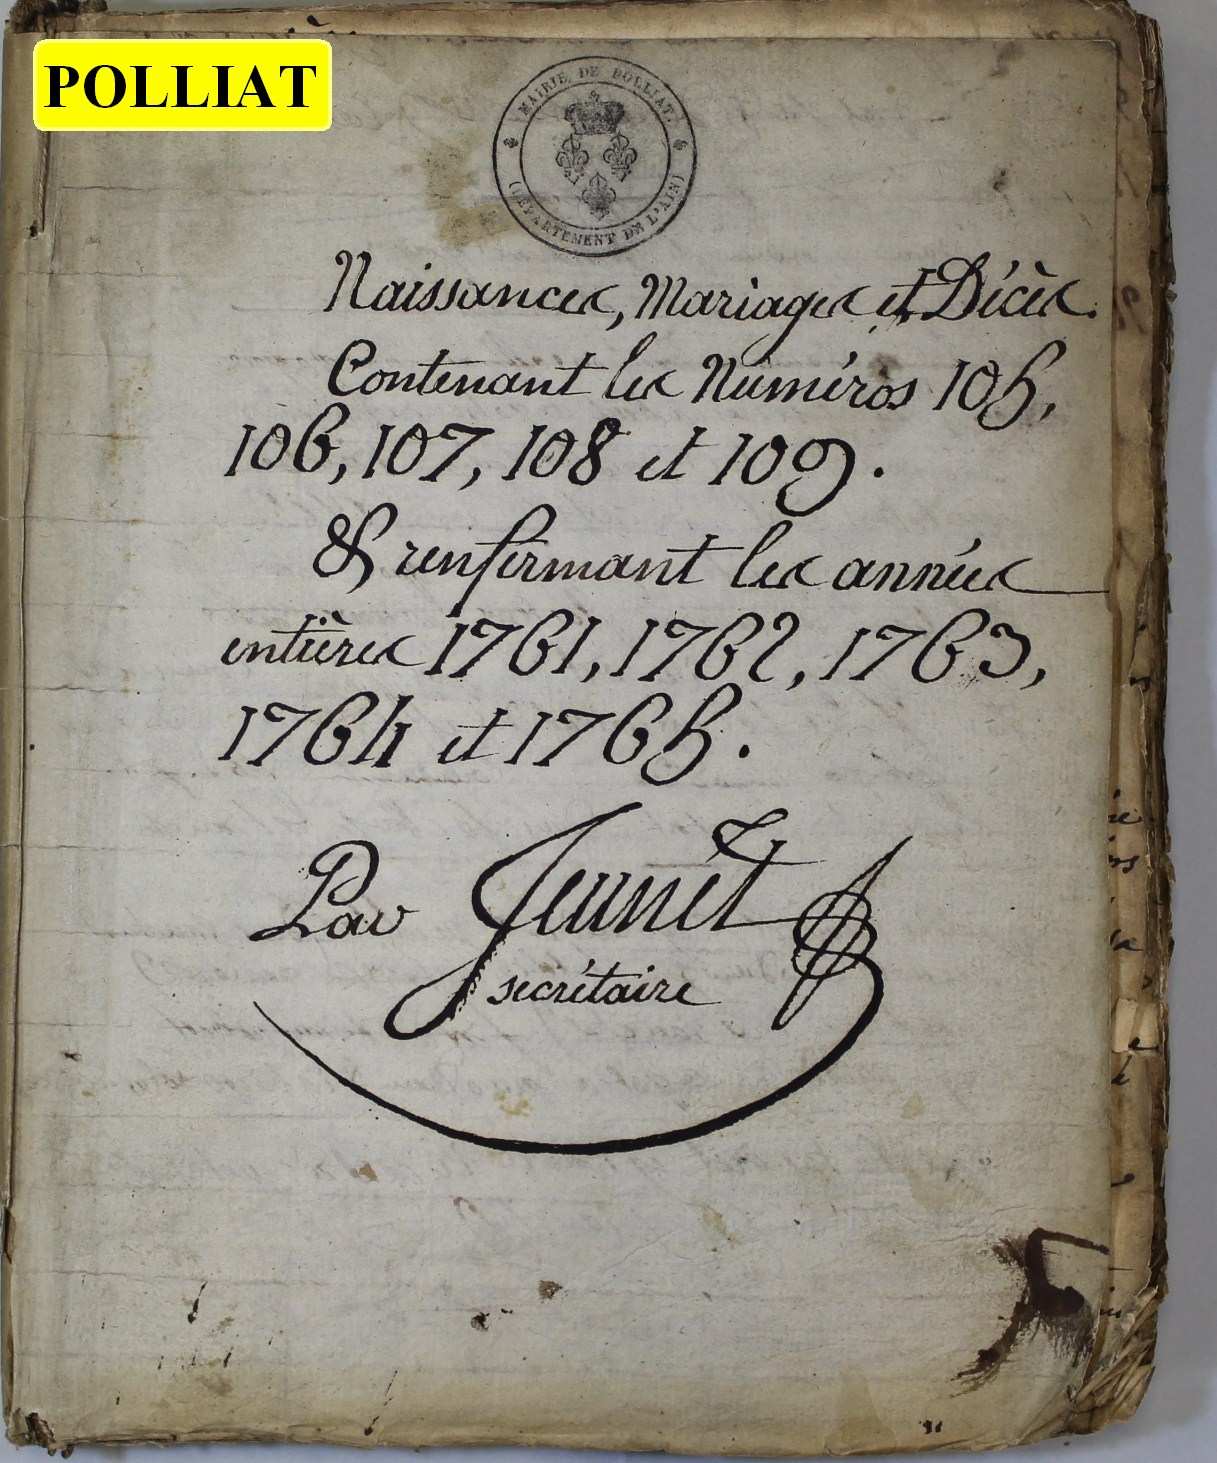 POLLIAT
MAIRIE DE POLLIAT.
(DÉPARTEMENT DE L'AIN)
Naissances, Mariages et Décès.
Contenant les Numéros 105,
106, 107, 108 et 109.
& renfermant les années
entières 1761, 1762, 1763,
1764 et 1765.
Par Jeunet
secrétaire